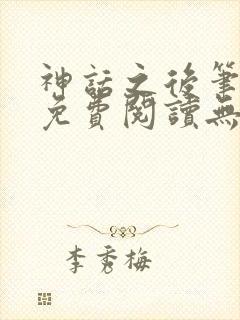 神話之後筆
免費閱讀無
李秀梅